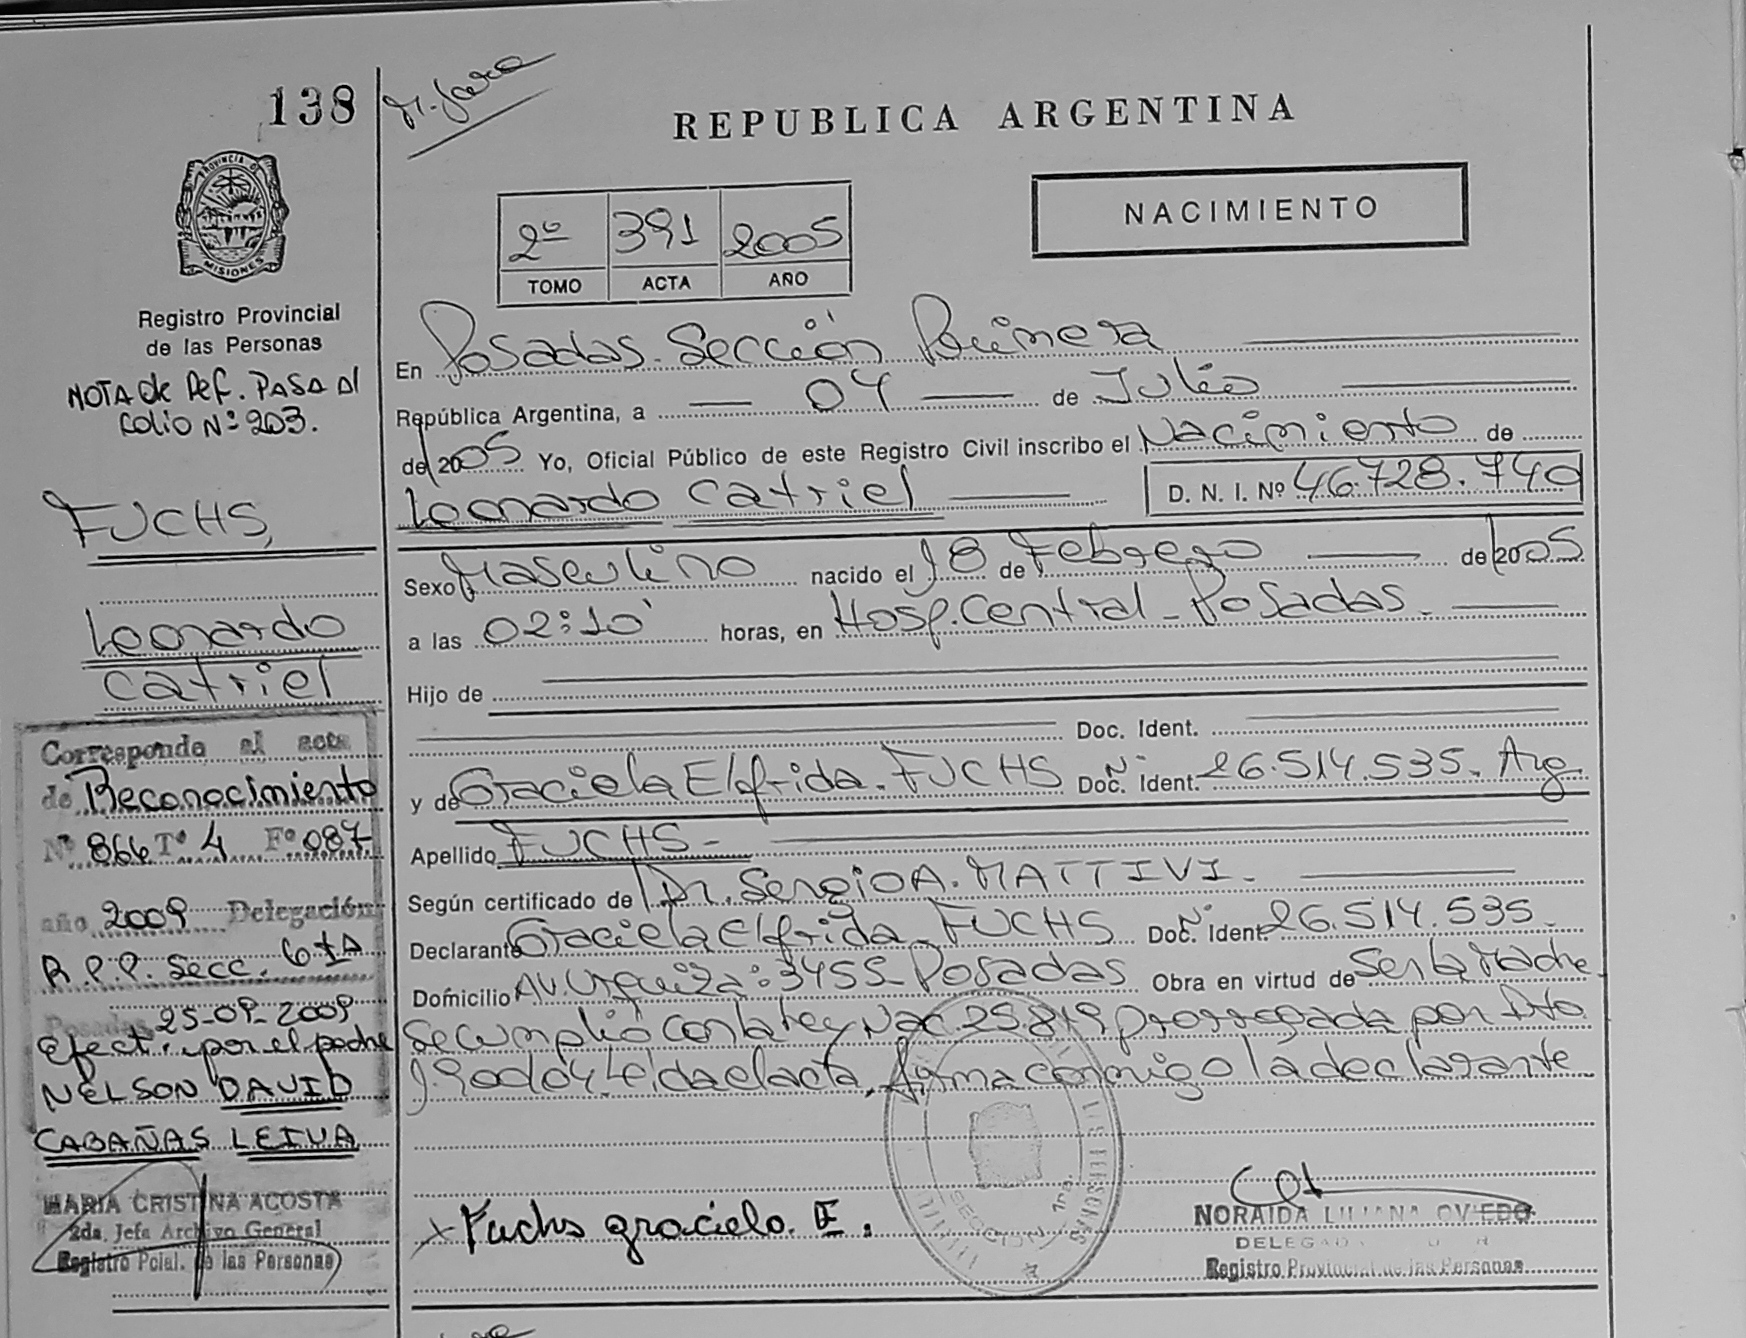 138
M. Jara
REPUBLICA ARGENTINA
PROVINCIA DE
MISIONES
NACIMIENTO
2º 391 2005
TOMO ACTA AÑO
Registro Provincial
de las Personas
NOTA de Ref. PASA Al
folio Nº 203.
FUCHS,
Leonardo
Catriel
Corresponde al acta
de Reconocimiento
Nº 866 Tº 4 Fº 087
año 2009 Delegación
R.P.P. Secc. 6ta
Posadas 25-09-2009
Efect. por el padre
NELSON DAVID
CABAÑAS LEIVA
MARIA CRISTINA ACOSTA
2da. Jefa Archivo General
Registro Pcial. de las Personas
En Posadas. Sección Primera
República Argentina, a — 04 — de Julio
de 2005 Yo, Oficial Público de este Registro Civil inscribo el Nacimiento de
Leonardo Catriel D. N. I. Nº 46.728.740
Sexo Masculino nacido el 18 de Febrero de 2005
a las 02:10' horas, en Hosp. Central - Posadas.
Hijo de
Doc. Ident.
y de Graciela Elfrida. FUCHS Nº Doc. Ident. 26.514.535. Arg
Apellido FUCHS-
Según certificado de Dr. Sergio A. MATTIVI.
Declarante Graciela Elfrida. FUCHS Nº Doc. Ident. 26.514.535.
Domicilio AV. Urquiza: 3455 - Posadas Obra en virtud de Ser la Madre
Se cumplió con la ley Nac. 25.819 prorrogada por Dto
Leída el acta, firma conmigo la declarante
x Fuchs graciela. E.
NORAIDA LILIANA OVIEDO
Registro Provincial de las Personas